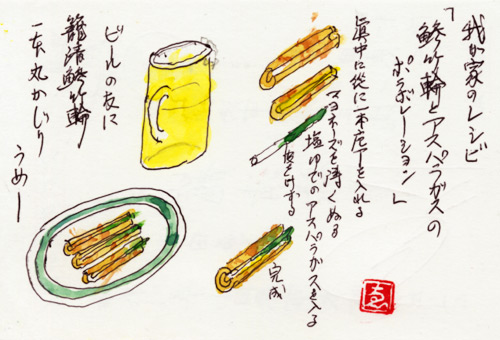 我が家のレシピ
「鯵竹輪とアスパラガスの
ポラボレーション」
真中に縦に一本庖丁を入れる
マヨネーズを薄くぬる
塩ゆでのアスパラガスを入る
完成
ビールの友に
籠清鯵竹輪
一本丸かじり
うめー
ゑ